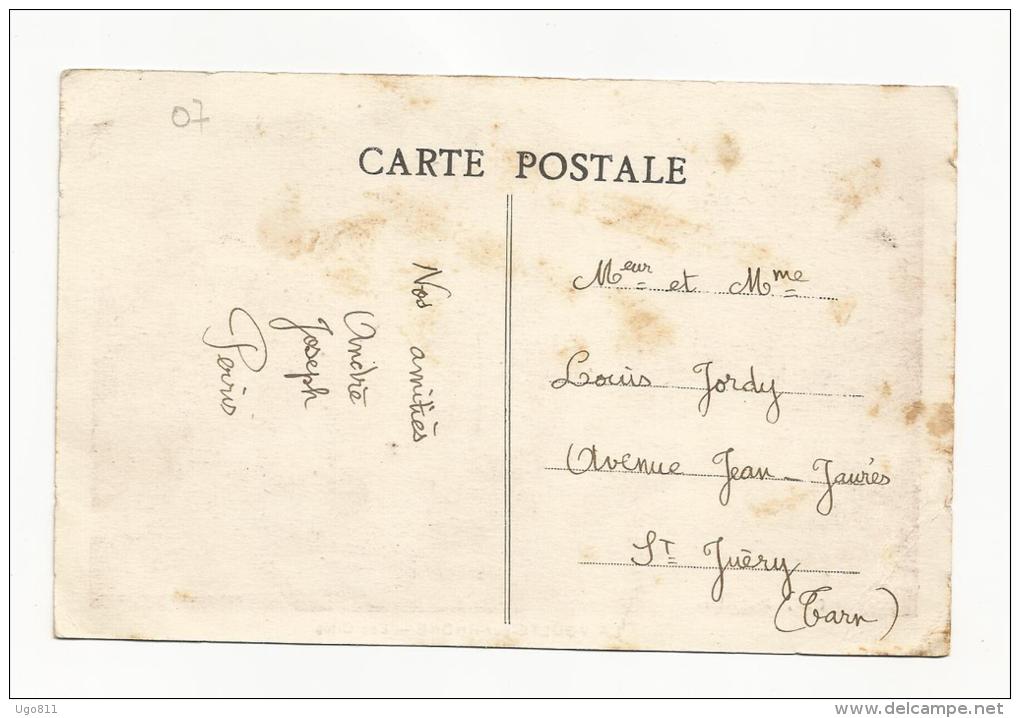 07
CARTE POSTALE
Nos amitiés
André
Joseph
M^eur et M^me
Louis Jordy
Avenue Jean-Jaurès
S^T Juéry
(Tarn)
Ugo811
www.delcampe.net